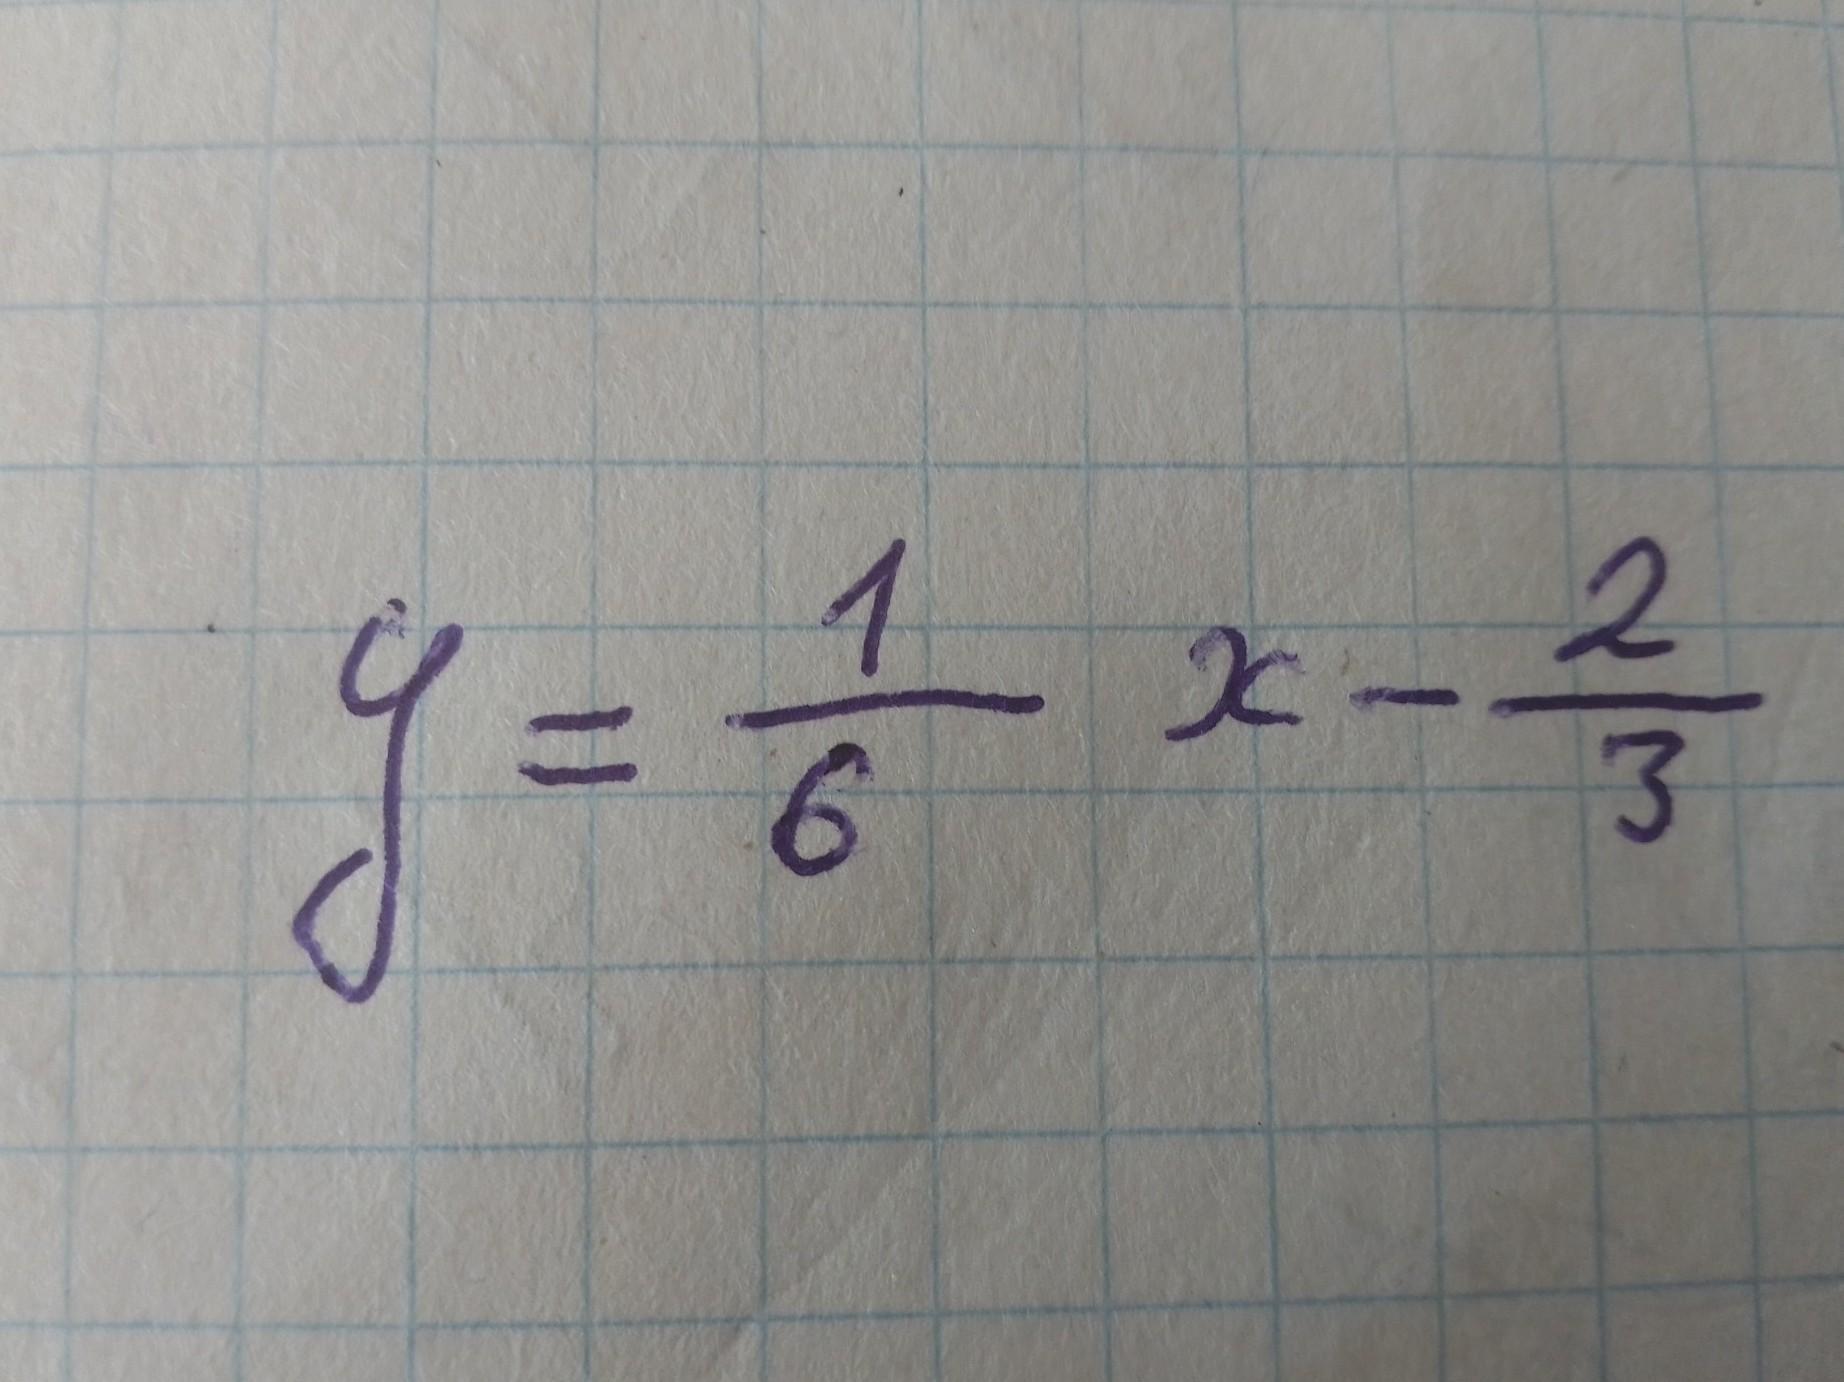 y = 1/6 x - 2/3